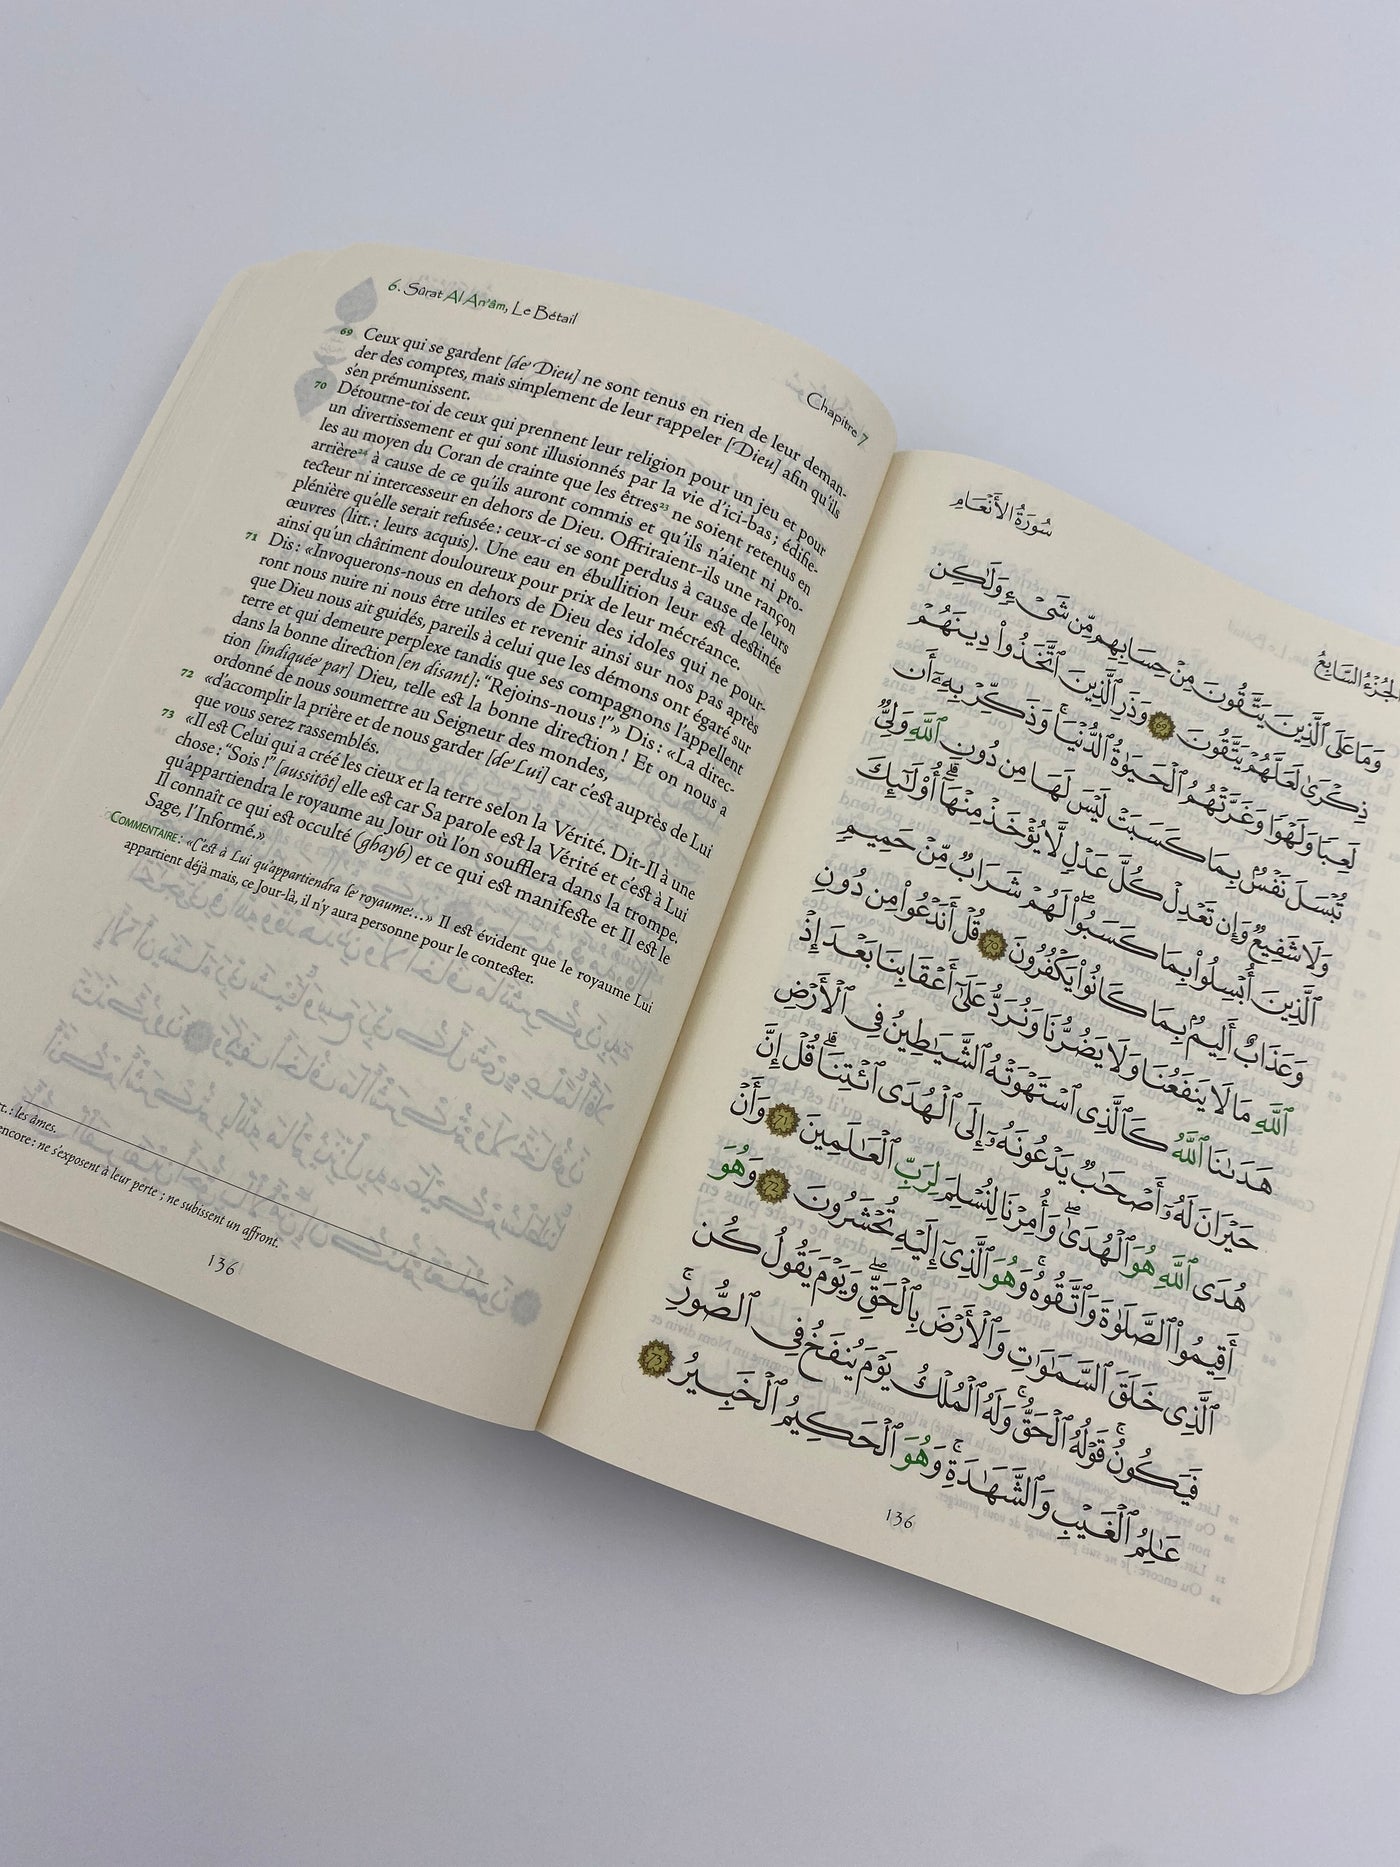 6. Sûrat Al An'âm, Le Bétail
Chapitre 7
69 Ceux qui se gardent [de Dieu] ne sont tenus en rien de leur deman-
der des comptes, mais simplement de leur rappeler [Dieu] afin qu'ils
s'en prémunissent.
70 Détourne-toi de ceux qui prennent leur religion pour un jeu et pour
un divertissement et qui sont illusionnés par la vie d'ici-bas ; édifie-
les au moyen du Coran de crainte que les êtres²³ ne soient retenus en
arrière²⁴ à cause de ce qu'ils auront commis et qu'ils n'aient ni pro-
tecteur ni intercesseur en dehors de Dieu. Offriraient-ils une rançon
plénière qu'elle serait refusée : ceux-ci se sont perdus à cause de leurs
œuvres (litt. : leurs acquis). Une eau en ébullition leur est destinée
ainsi qu'un châtiment douloureux pour prix de leur mécréance.
71 Dis : «Invoquerons-nous en dehors de Dieu des idoles qui ne pour-
ront nous nuire ni nous être utiles et revenir ainsi sur nos pas après
que Dieu nous ait guidés, pareils à celui que les démons ont égaré sur
terre et qui demeure perplexe tandis que ses compagnons l'appellent
dans la bonne direction [en disant] : "Rejoins-nous !"» Dis : «La direc-
tion [indiquée par] Dieu, telle est la bonne direction ! Et on nous a
ordonné de nous soumettre au Seigneur des mondes,
72 «d'accomplir la prière et de nous garder [de Lui] car c'est auprès de Lui
que vous serez rassemblés.
73 «Il est Celui qui a créé les cieux et la terre selon la Vérité. Dit-Il à une
chose : "Sois !" [aussitôt] elle est car Sa parole est la Vérité et c'est à Lui
qu'appartiendra le royaume au Jour où l'on soufflera dans la trompe.
Il connaît ce qui est occulté (ghayb) et ce qui est manifeste et Il est le
Sage, l'Informé.»
COMMENTAIRE : «C'est à Lui qu'appartiendra le royaume...» Il est évident que le royaume Lui
appartient déjà mais, ce Jour-là, il n'y aura personne pour le contester.
les âmes.
encore : ne s'exposent à leur perte ; ne subissent un affront.
136
سُورَةُ الأَنْعَامِ
الجُزْءُ السَّابِعُ
وَمَا عَلَى ٱلَّذِينَ يَتَّقُونَ مِنْ حِسَابِهِم مِّن شَىْءٍ وَلَٰكِن
ذِكْرَىٰ لَعَلَّهُمْ يَتَّقُونَ 69 وَذَرِ ٱلَّذِينَ ٱتَّخَذُوا۟ دِينَهُمْ
لَعِبًا وَلَهْوًا وَغَرَّتْهُمُ ٱلْحَيَوٰةُ ٱلدُّنْيَا ۚ وَذَكِّرْ بِهِۦٓ أَن
تُبْسَلَ نَفْسٌۢ بِمَا كَسَبَتْ لَيْسَ لَهَا مِن دُونِ ٱللَّهِ وَلِىٌّ
وَلَا شَفِيعٌ وَإِن تَعْدِلْ كُلَّ عَدْلٍ لَّا يُؤْخَذْ مِنْهَآ ۗ أُو۟لَٰٓئِكَ
ٱلَّذِينَ أُبْسِلُوا۟ بِمَا كَسَبُوا۟ ۖ لَهُمْ شَرَابٌ مِّنْ حَمِيمٍ
وَعَذَابٌ أَلِيمٌۢ بِمَا كَانُوا۟ يَكْفُرُونَ 70 قُلْ أَنَدْعُوا۟ مِن دُونِ
ٱللَّهِ مَا لَا يَنفَعُنَا وَلَا يَضُرُّنَا وَنُرَدُّ عَلَىٰٓ أَعْقَابِنَا بَعْدَ إِذْ
هَدَىٰنَا ٱللَّهُ كَٱلَّذِى ٱسْتَهْوَتْهُ ٱلشَّيَٰطِينُ فِى ٱلْأَرْضِ
حَيْرَانَ لَهُۥٓ أَصْحَٰبٌ يَدْعُونَهُۥٓ إِلَى ٱلْهُدَى ٱئْتِنَا ۗ قُلْ إِنَّ
هُدَى ٱللَّهِ هُوَ ٱلْهُدَىٰ ۖ وَأُمِرْنَا لِنُسْلِمَ لِرَبِّ ٱلْعَٰلَمِينَ 71 وَأَنْ
أَقِيمُوا۟ ٱلصَّلَوٰةَ وَٱتَّقُوهُ ۚ وَهُوَ ٱلَّذِىٓ إِلَيْهِ تُحْشَرُونَ 72 وَهُوَ
ٱلَّذِى خَلَقَ ٱلسَّمَٰوَٰتِ وَٱلْأَرْضَ بِٱلْحَقِّ ۖ وَيَوْمَ يَقُولُ كُن
فَيَكُونُ ۚ قَوْلُهُ ٱلْحَقُّ ۚ وَلَهُ ٱلْمُلْكُ يَوْمَ يُنفَخُ فِى ٱلصُّورِ ۚ
عَٰلِمُ ٱلْغَيْبِ وَٱلشَّهَٰدَةِ ۚ وَهُوَ ٱلْحَكِيمُ ٱلْخَبِيرُ 73
136